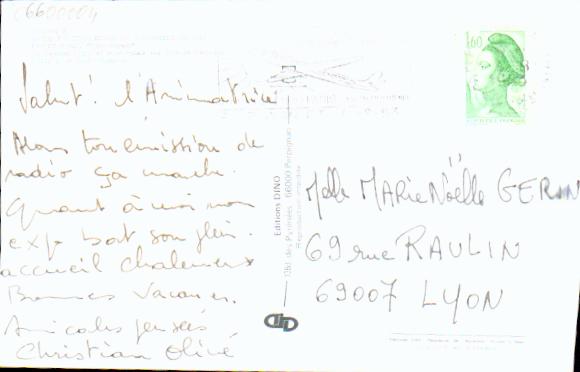 C6600604
Salut! l'Animatrice
Alors ton émission de
radio ça marche.
Quant à moi mon
exp bat son plein.
accueil chaleureux
Bonnes Vacances.
Amicales pensées
Christian Olivé
Editions DINO
66000 Perpignan
Reproduction interdite
1,60
Melle MARIE Noëlle GERIN
69 rue RAULIN
69007 LYON